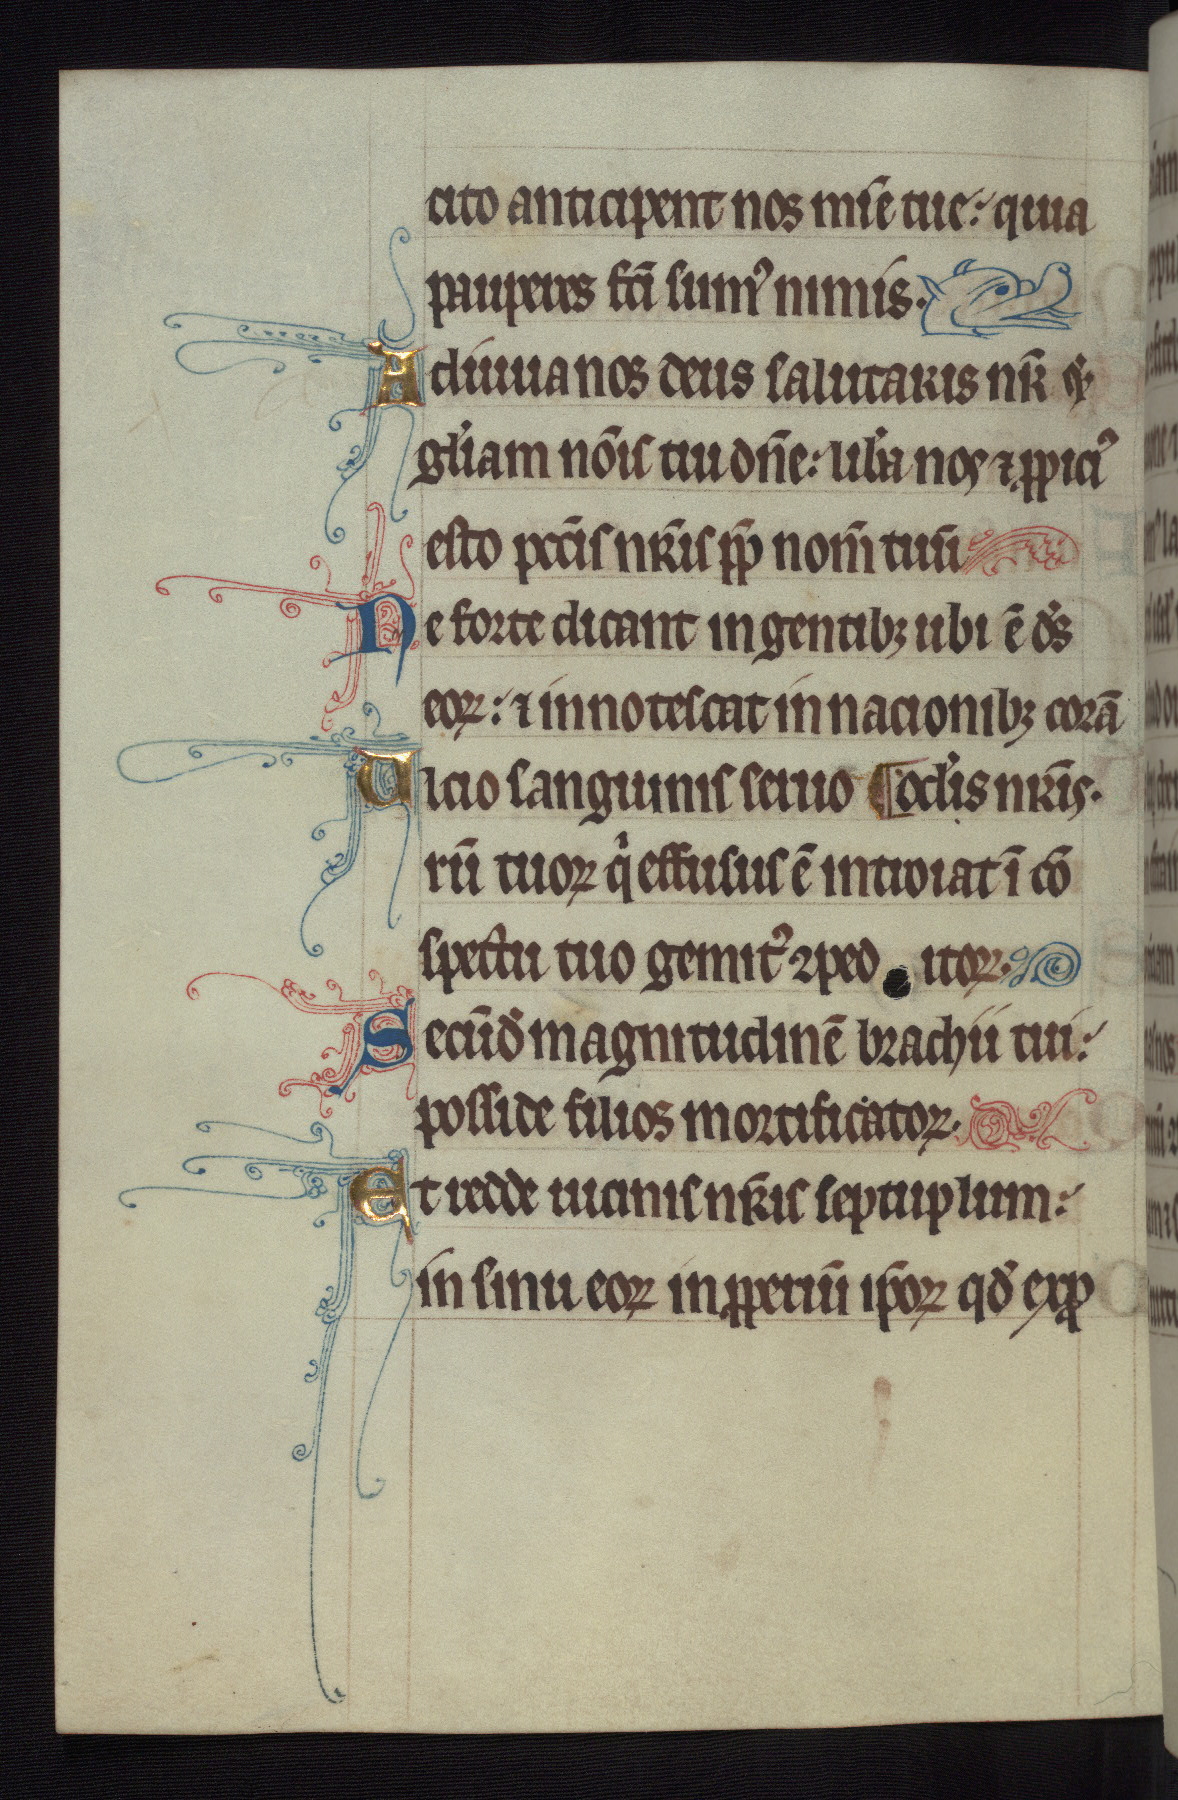 cito anticipent nos mīe tue: quia
pauperes fc̄i sumꝰ nimis.
Adiuua nos deus salutaris nr̄ ⁊ ꝓ
gl̄iam nōis tui dn̄e: lib̄a nos ⁊ ꝓpiciꝰ
esto pcc̄is nr̄is ꝓp̄ nom̄ tuū
Ne forte dicant in gentibꝫ ubi ē ds̄
eoꝝ: ⁊ innotescat in nacionibꝫ corā
Ulcio sanguinis seruo ¶ ocl̄is nr̄is.
rū tuoꝝ q̄ effusus ē introiat ī cō
spectu tuo gemitꝰ ꝯped itoꝝ.
Secūd̄ magnitudinē brachii tui:
posside filios mortificatoꝝ.
Et redde uicinis nr̄is septuplum:
in sinu eoꝝ inꝓperiū ip̄oꝝ qd̄ exꝓ